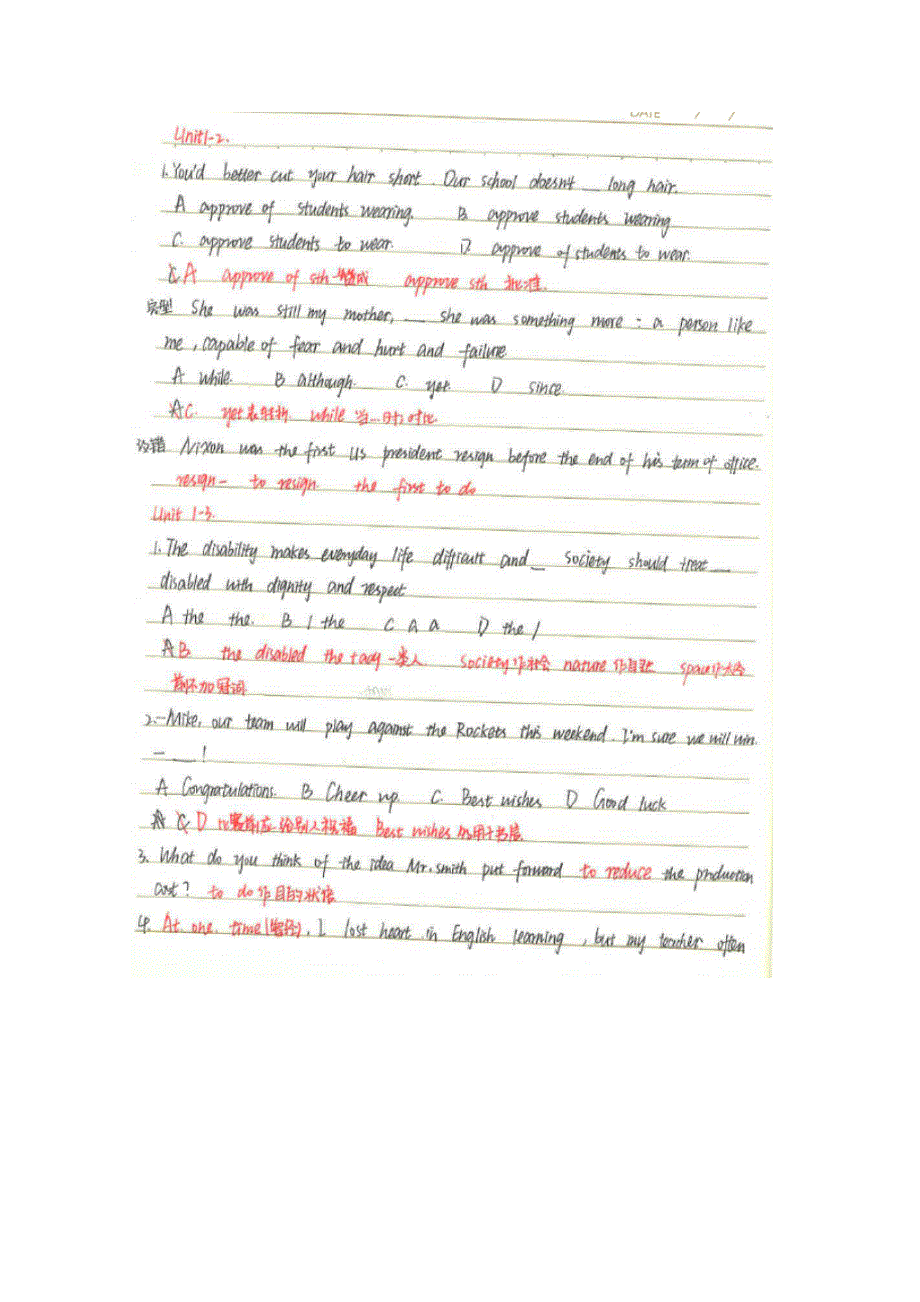 DATE / /
Unit1-2.
1.You'd better cut your hair short. Our school doesn't __ long hair.
A approve of students wearing. B approve students wearing
C. approve students to wear. D approve of students to wear.
A approve of sth 赞成 approve sth 批准.
完型 She was still my mother, __ she was something more : a person like
me, capable of fear and hurt and failure
A while. B although. C. yet. D since.
A C. yet表转折 while 当...时,对比
改错 Nixon was the first US president resign before the end of his term of office.
resign - to resign the first to do
Unit 1-3.
1.The disability makes everyday life difficult and __ society should treat __
disabled with dignity and respect
A the the. B / the C a a D the /
A B the disabled the + adj 一类人 society作社会 nature作自然 space作太空
前不加冠词
2.-Mike, our team will play against the Rockets this weekend. I'm sure we will win.
- __!
A Congratulations. B Cheer up. C. Best wishes D Good luck
D 比赛前应给别人祝福 Best wishes 仅用于书信
3. What do you think of the idea Mr.smith put forward to reduce the production
cost? to do 作目的状语
4. At one time(曾经), I lost heart in English learning, but my teacher often